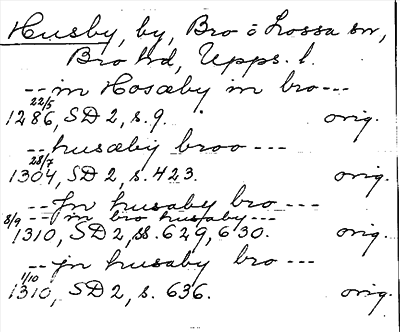 Husby, by, Bro o Lossa sn,
Bro hd, Upps. l.
-- in Hosæby in bro ---
22/5
1286, SD 2, s. 9. orig.
-- husæby broo ---
28/7
1304, SD 2, s. 423. orig.
-- Jn husaby bro ---
8/9 -- in bro husaby ---
1310, SD 2, ss. 629, 630. orig.
-- jn husaby bro ---
1/10
1310, SD 2, s. 636. orig.